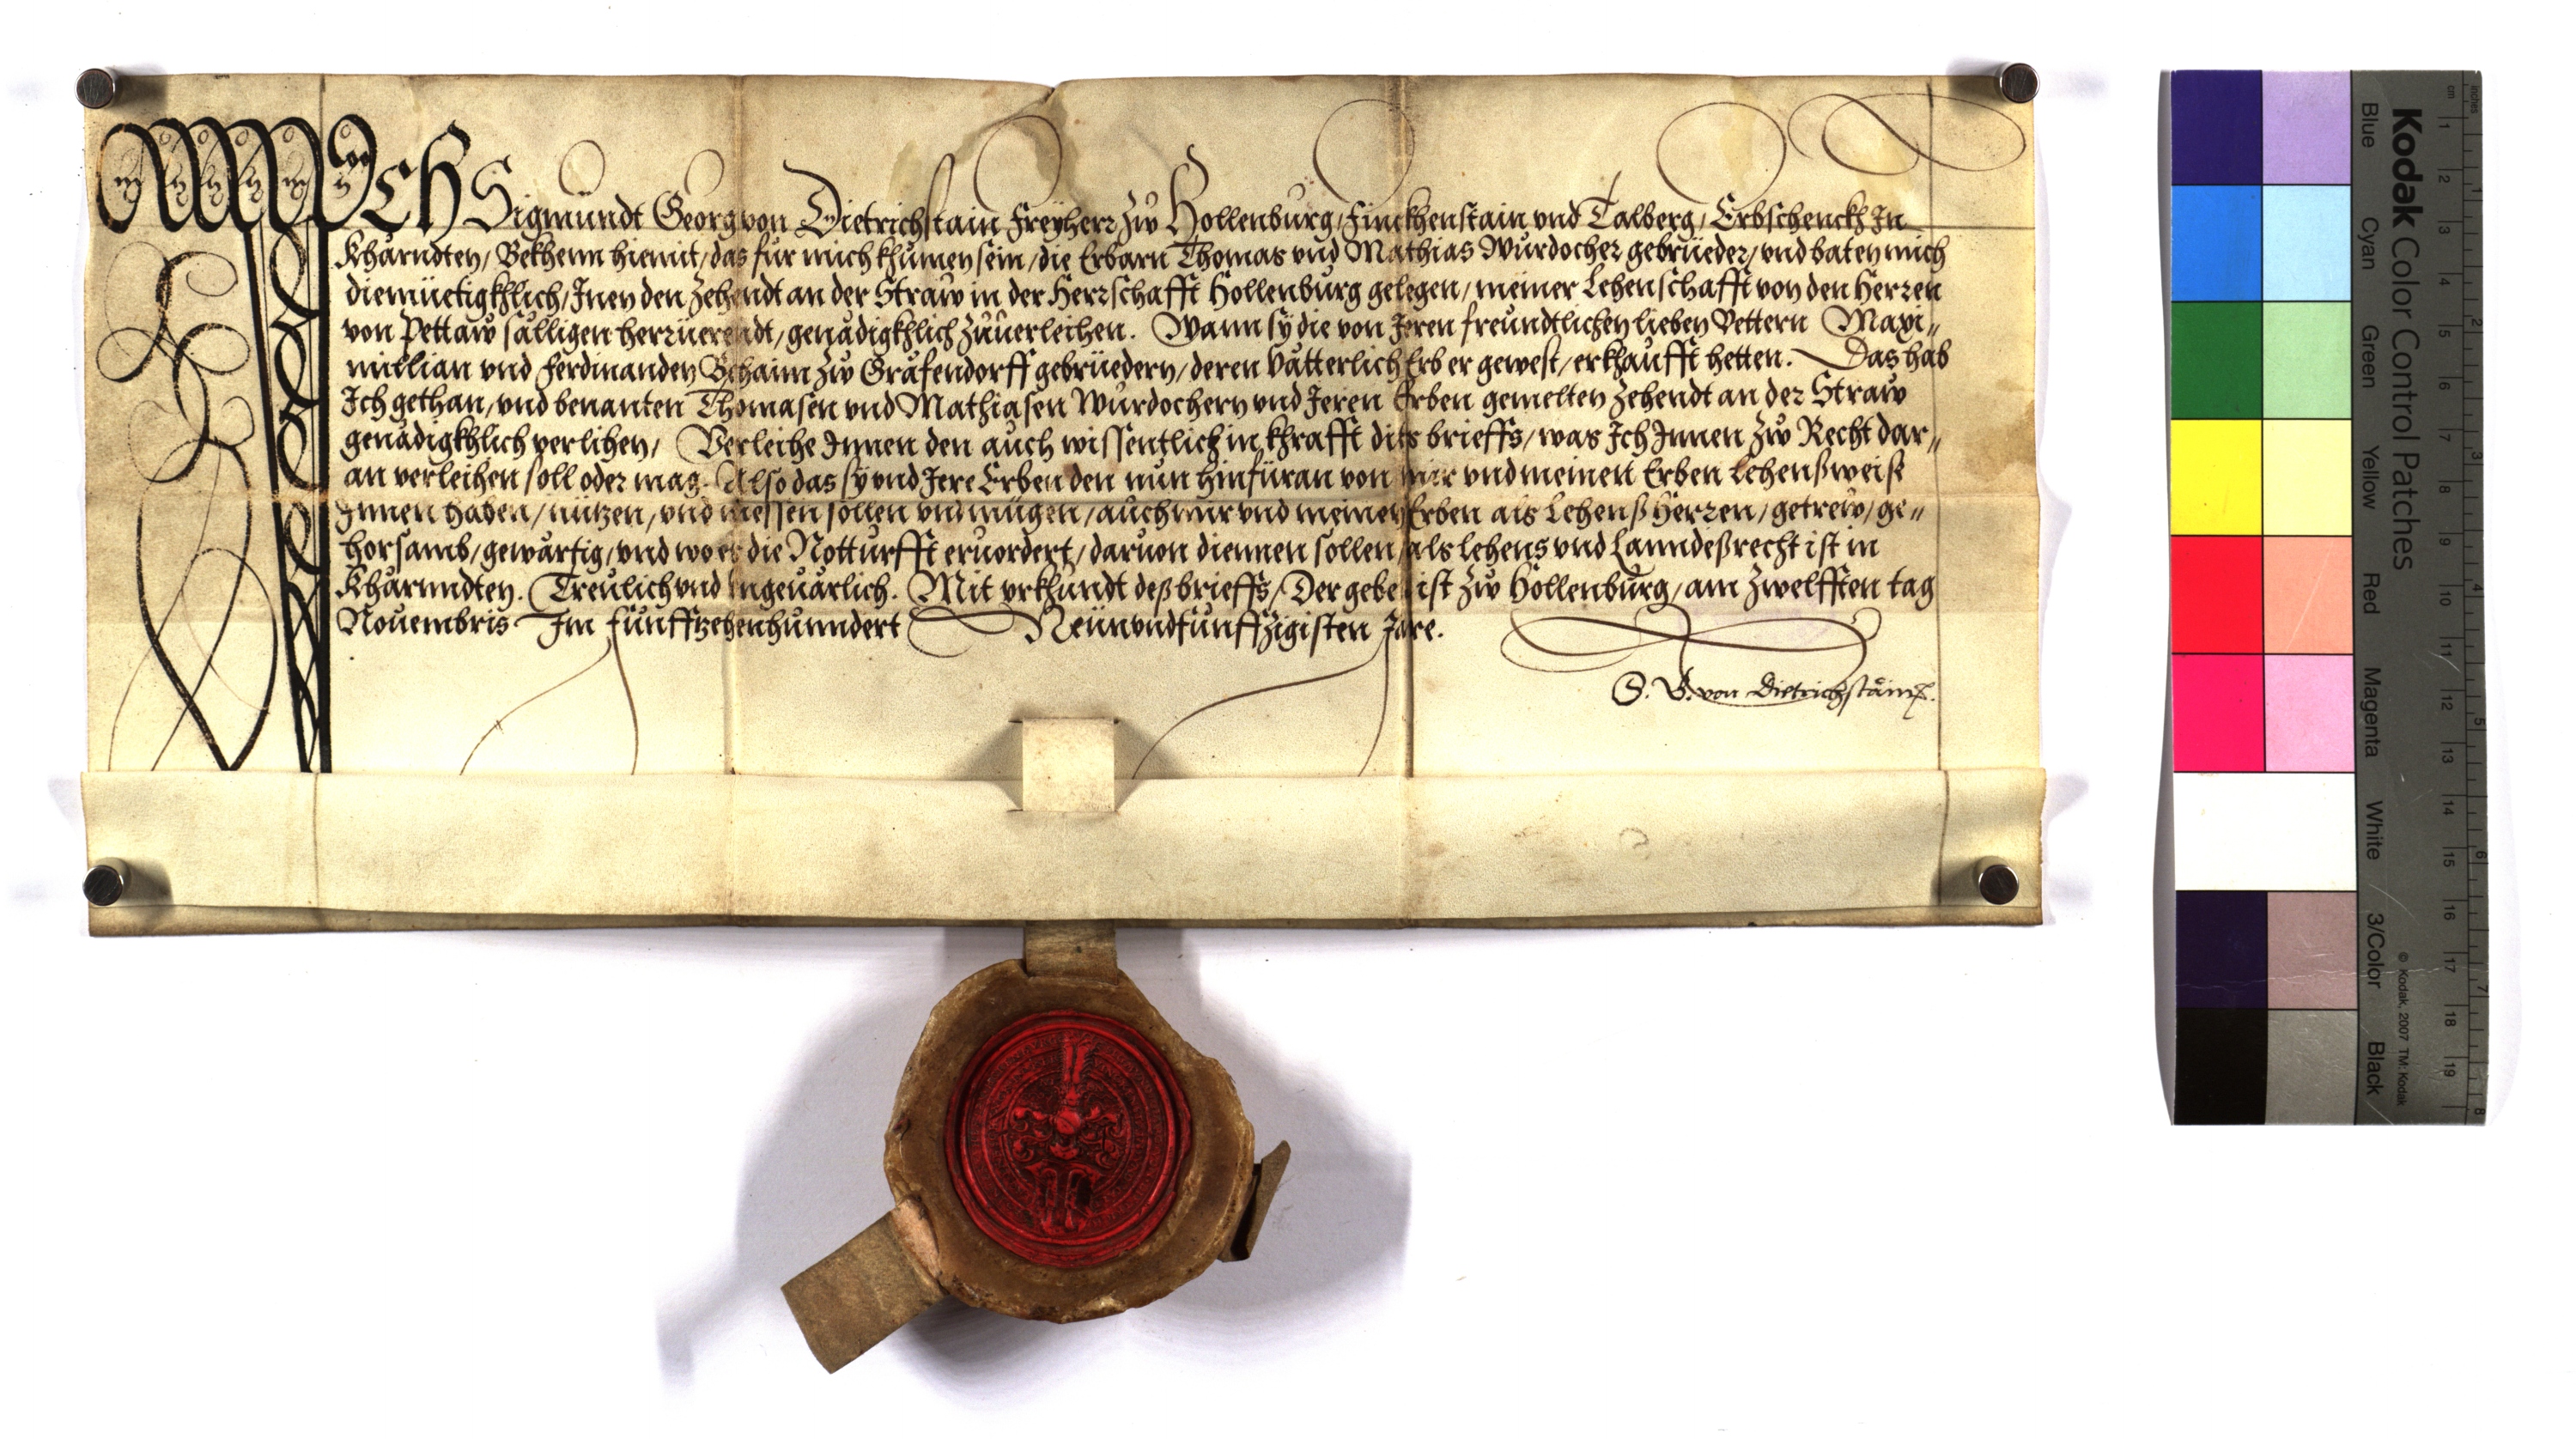 ICH Sigmundt Georg von Dietrichstain Freyherr Zw Hollenburg, Finckhenstain vnd Talberg, Erbschenckh In
Khärndten, Bekhenn hiemit, das für mich khumen sein, die Erbarn Thomas vnd Mathias Wurdocher gebrüeder, vnd baten mich
diemüetigkhlich, Inen den Zehendt an der Straw in der Herrschafft Hollenburg gelegen, meiner Lehenschafft von den Herren
von Pettaw sälligen herrüerendt, genädigkhlich Zuuerleihen. Wann sy die von Jeren freundtlichen lieben Vettern Maxi„
millian vnd Ferdinanden Behaim Zw Gräfendorff gebrüedern, deren Vätterlich Erb er gewest, erkhaufft hetten. Das hab
Ich gethan, vnd benanten Thomasen vnd Mathiasen Wurdochern vnd Jeren Erben gemelten Zehendt an der Straw
genädigkhlich verlihen, Verleihe Innen den auch wissentlich in khrafft dits brieffs, was Ich Innen Zw Recht dar„
an verleihen soll oder mag. Also das sy vnd Jere Erben den nun hinfüran von mir vnd meinen Erben Lehenßweise
Innen haben, nützen, vnd niessen sollen vnd mügen, auch mir vnd meinen Erben als Lehenß Herren, getrew, ge„
horsamb, gewärtig, vnd wo es die Notturfft eruordert, daruon diennen sollen, als lehens vnd Lanndeßrecht ist in
Khärnndten. Treulich vnd vngeuärlich. Mit vrkhundt deß brieffs, Der geben ist Zw Hollenburg, am Zwelfften tag
Nouembris Im fünffzehenhunndert Neünvndfünffzigisten Jare.
S. G. von Dietrichstain
Kodak Color Control Patches
Blue Cyan Green Yellow Red Magenta White 3/Color Black
© Kodak, 2007 TM: Kodak
inches 1 2 3 4 5 6 7 8
cm 1 2 3 4 5 6 7 8 9 10 11 12 13 14 15 16 17 18 19